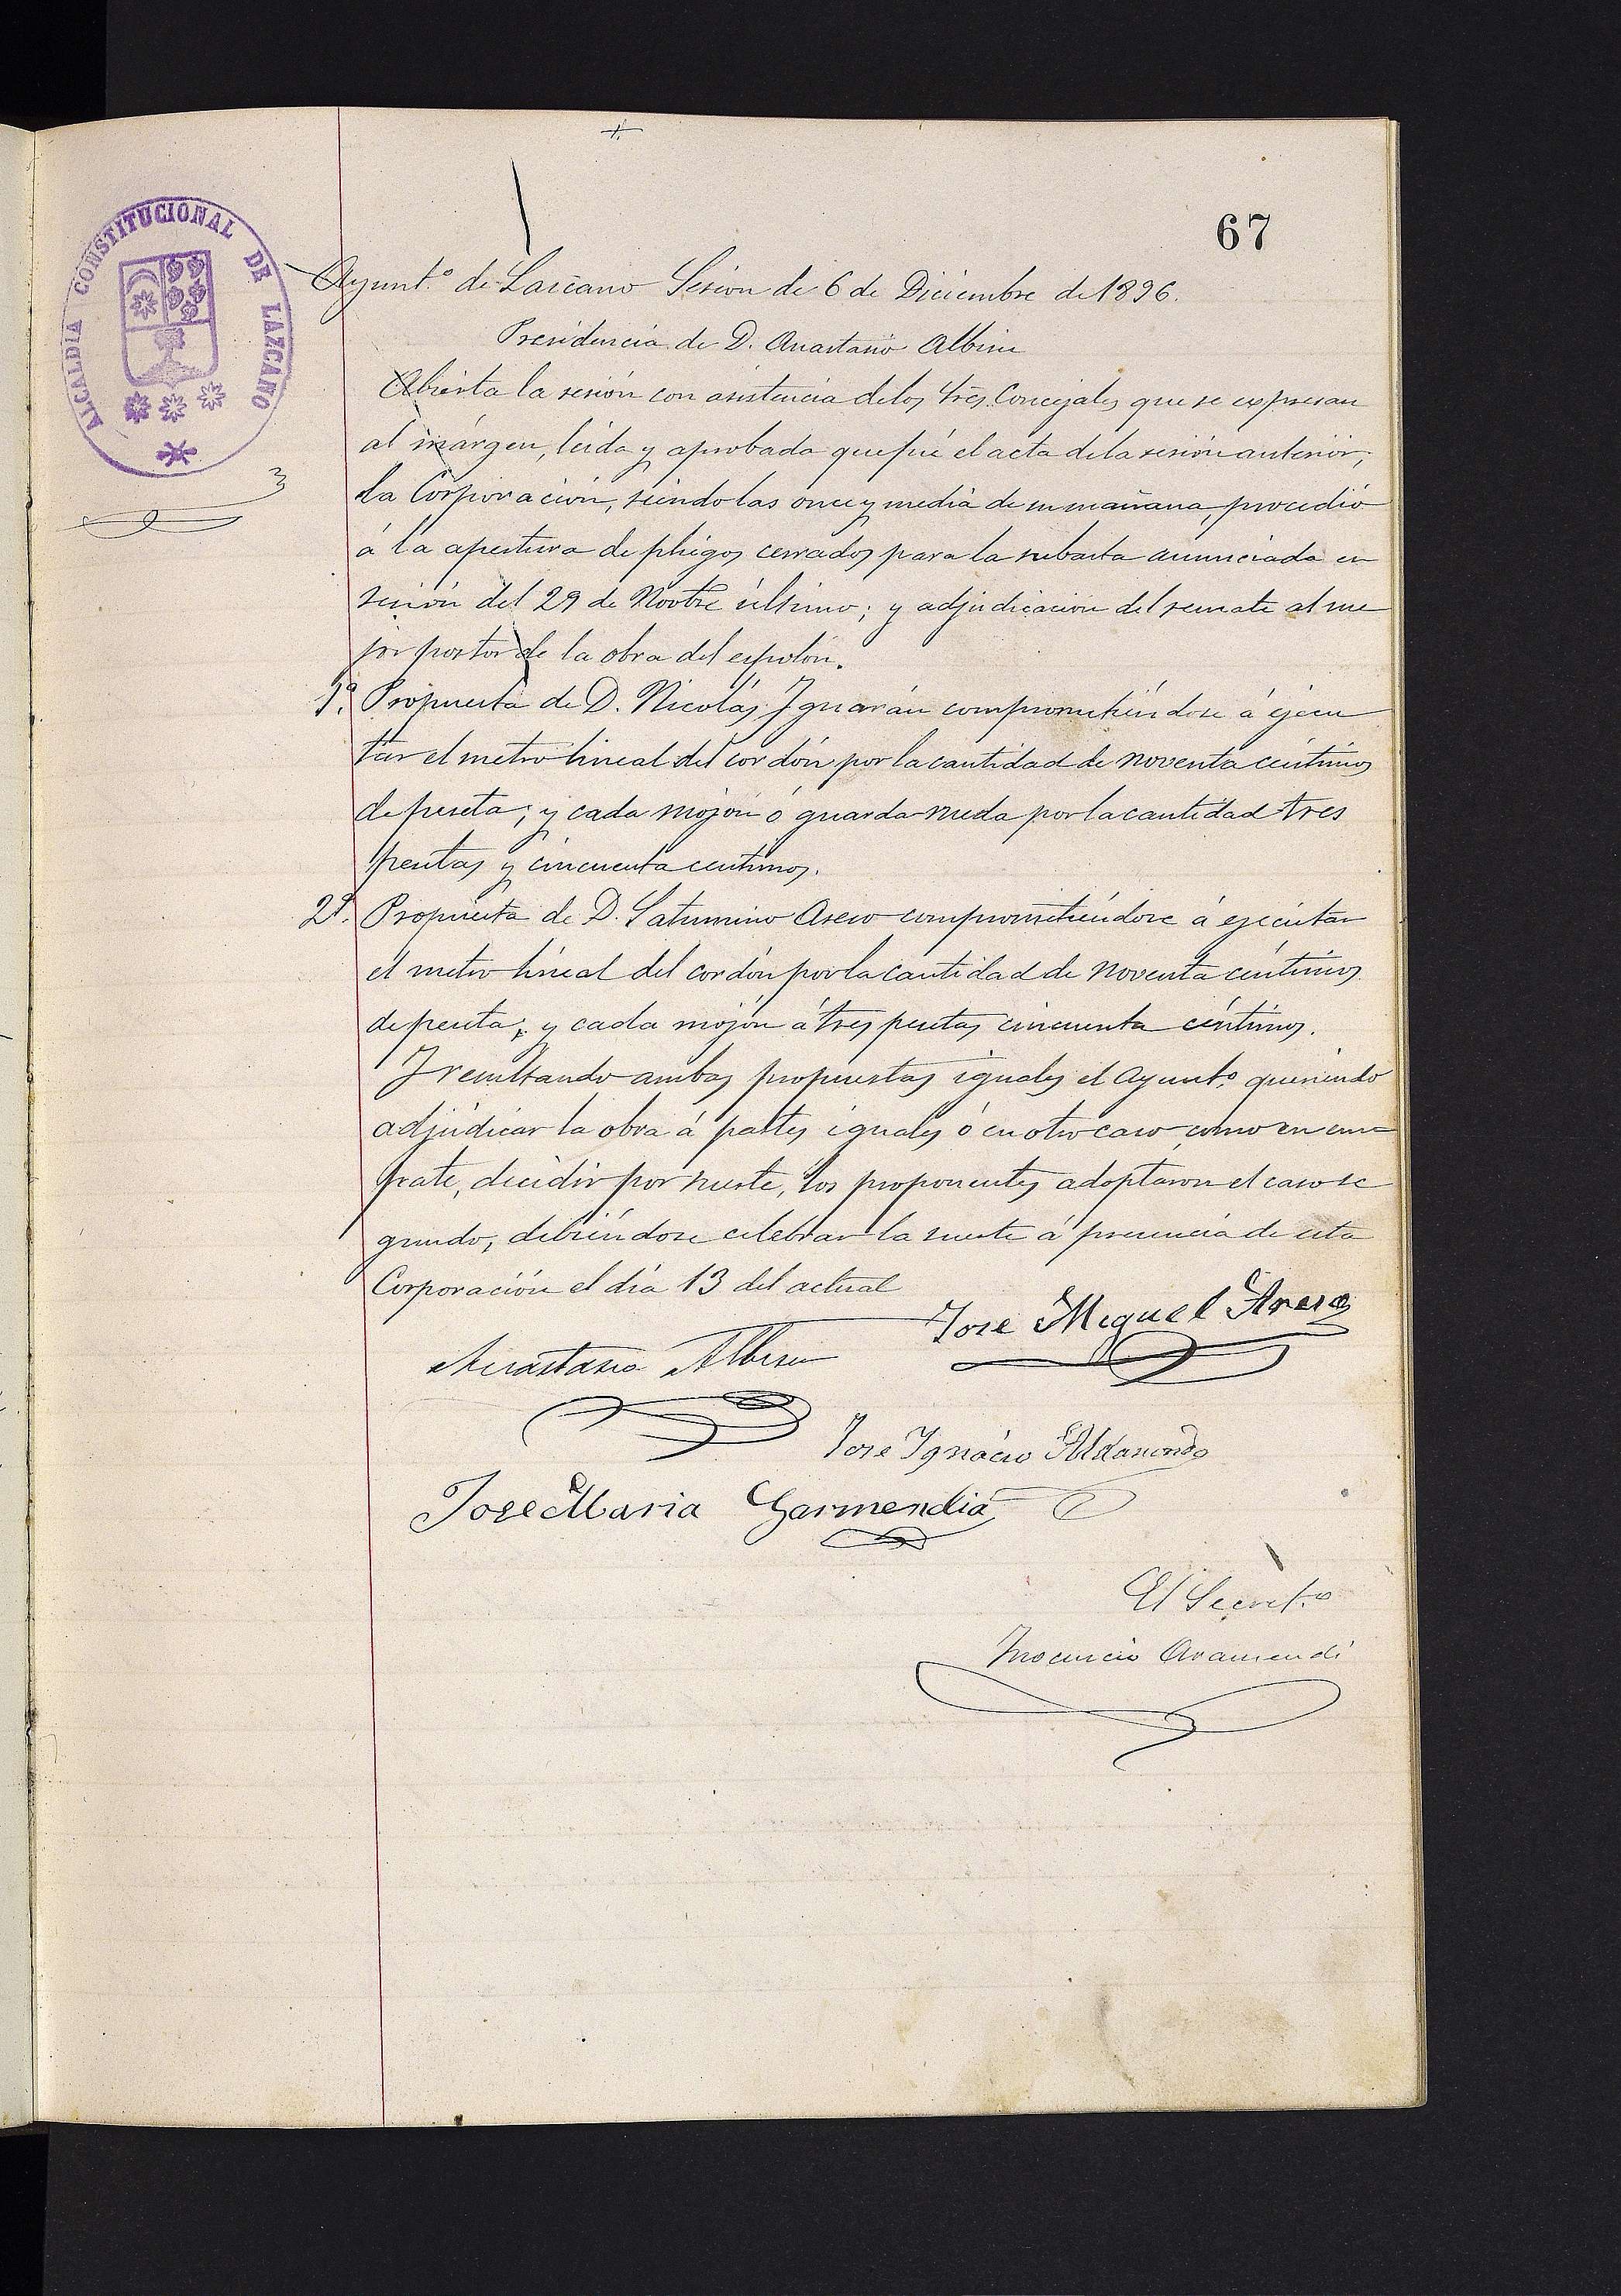 67
ALCALDIA CONSTITUCIONAL DE LAZCANO
Ayunt.º de Lazcano Sesion de 6 de Diciembre de 1896.
Presidencia de D. Anastasio Albisu
Abierta la sesión con asistencia de los Sres. Concejales que se expresan
al márgen, leida y aprobada que fué el acta de la sesión anterior;
la Corporación, siendo las once y media de su mañana, procedió
á la apertura de pliegos cerrados para la subasta anunciada en
sesión del 29 de Novbre último; y adjudicación del remate al me
jor postor de la obra del espolón.
1ª. Propuesta de D. Nicolás Iguarán comprometiéndose á ejecu
tar el metro lineal del cordón por la cantidad de noventa céntimos
de peseta; y cada mojón ó guarda-rueda por la cantidad tres
pesetas y cincuenta centimos.
2ª. Propuesta de D. Saturnino Aseso comprometiéndose á ejecutar
el metro lineal del cordón por la cantidad de noventa céntimos
de peseta; y cada mojón á tres pesetas cincuenta céntimos.
Y resultando ambas propuestas iguales el Ayunt.º queriendo
adjudicar la obra á partes iguales ó en otro caso como en em=
pate, decidir por suerte, los proponentes adoptaron el caso se
gundo, debiéndose celebrar la suerte á presencia de esta
Corporación el día 13 del actual
Jose Miguel Areso
Anastasio Albisu
Jose Ignacio Aldasoro
Jose Maria Garmendia
El Secret.º
Inocencio Aramendi